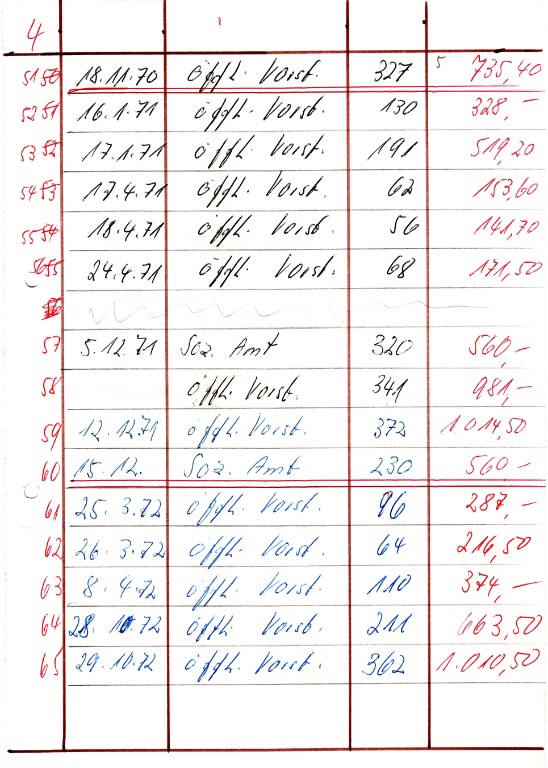 4
51 50 18.11.70 öffl. Vorst. 327 5 735,40
52 51 16.1.71 öffl. Vorst. 130 328,-
53 52 17.1.71 öffl. Vorst. 191 519,20
54 53 17.4.71 öffl. Vorst. 62 153,60
55 54 18.4.71 öffl. Vorst. 56 141,70
56 55 24.4.71 öffl. Vorst. 68 171,50
57 5.12.71 Soz. Amt 320 560,-
58 öffl. Vorst. 341 981,-
59 12.12.71 öffl. Vorst. 372 1014,50
60 15.12. Soz. Amt 230 560,-
61 25.3.72 öffl. Vorst. 96 287,-
62 26.3.72 öffl. Vorst. 64 216,50
63 8.4.72 öffl. Vorst. 110 374,-
64 28.10.72 öffl. Vorst. 211 663,50
65 29.10.72 öffl. Vorst. 362 1.010,50